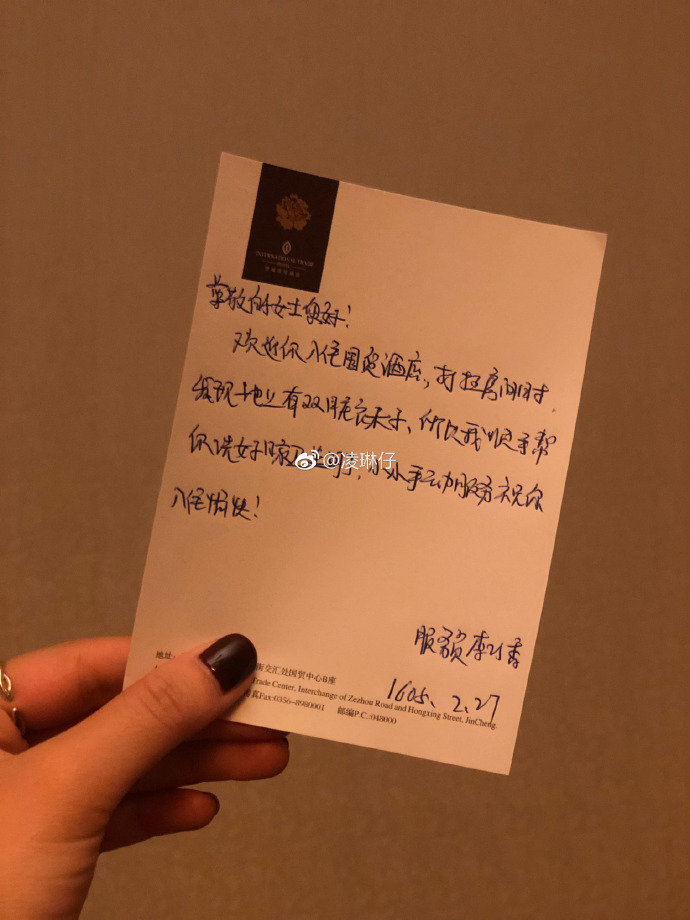 INTERNATIONAL TRADE
HOTEL
尊敬的女士您好!
欢迎你入住国贸酒店,打扫房间时,
发现地上有双脏袜子、价以我顺手帮
你洗好晾卫生间,小小手动服务祝你
入住愉快!
@凌琳仔
服务员李小香
1605. 2.27
地址:
街交汇处国贸中心B座
Trade Center, Interchange of Zezhou Road and Hongxing Street, JinCheng.
传真Fax:0356-8980001 邮编P.C.:048000